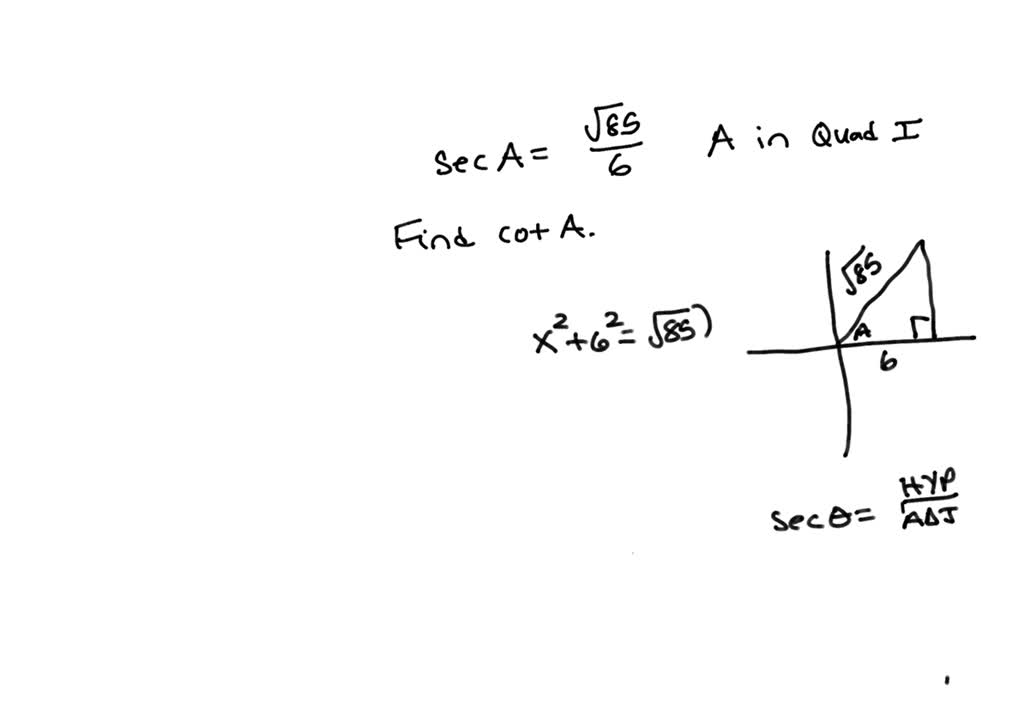 sec A = √85/6 A in Quad I
Find cot A.
x²+6²=√85)
√85
A
6
sec θ = HYP/ADJ